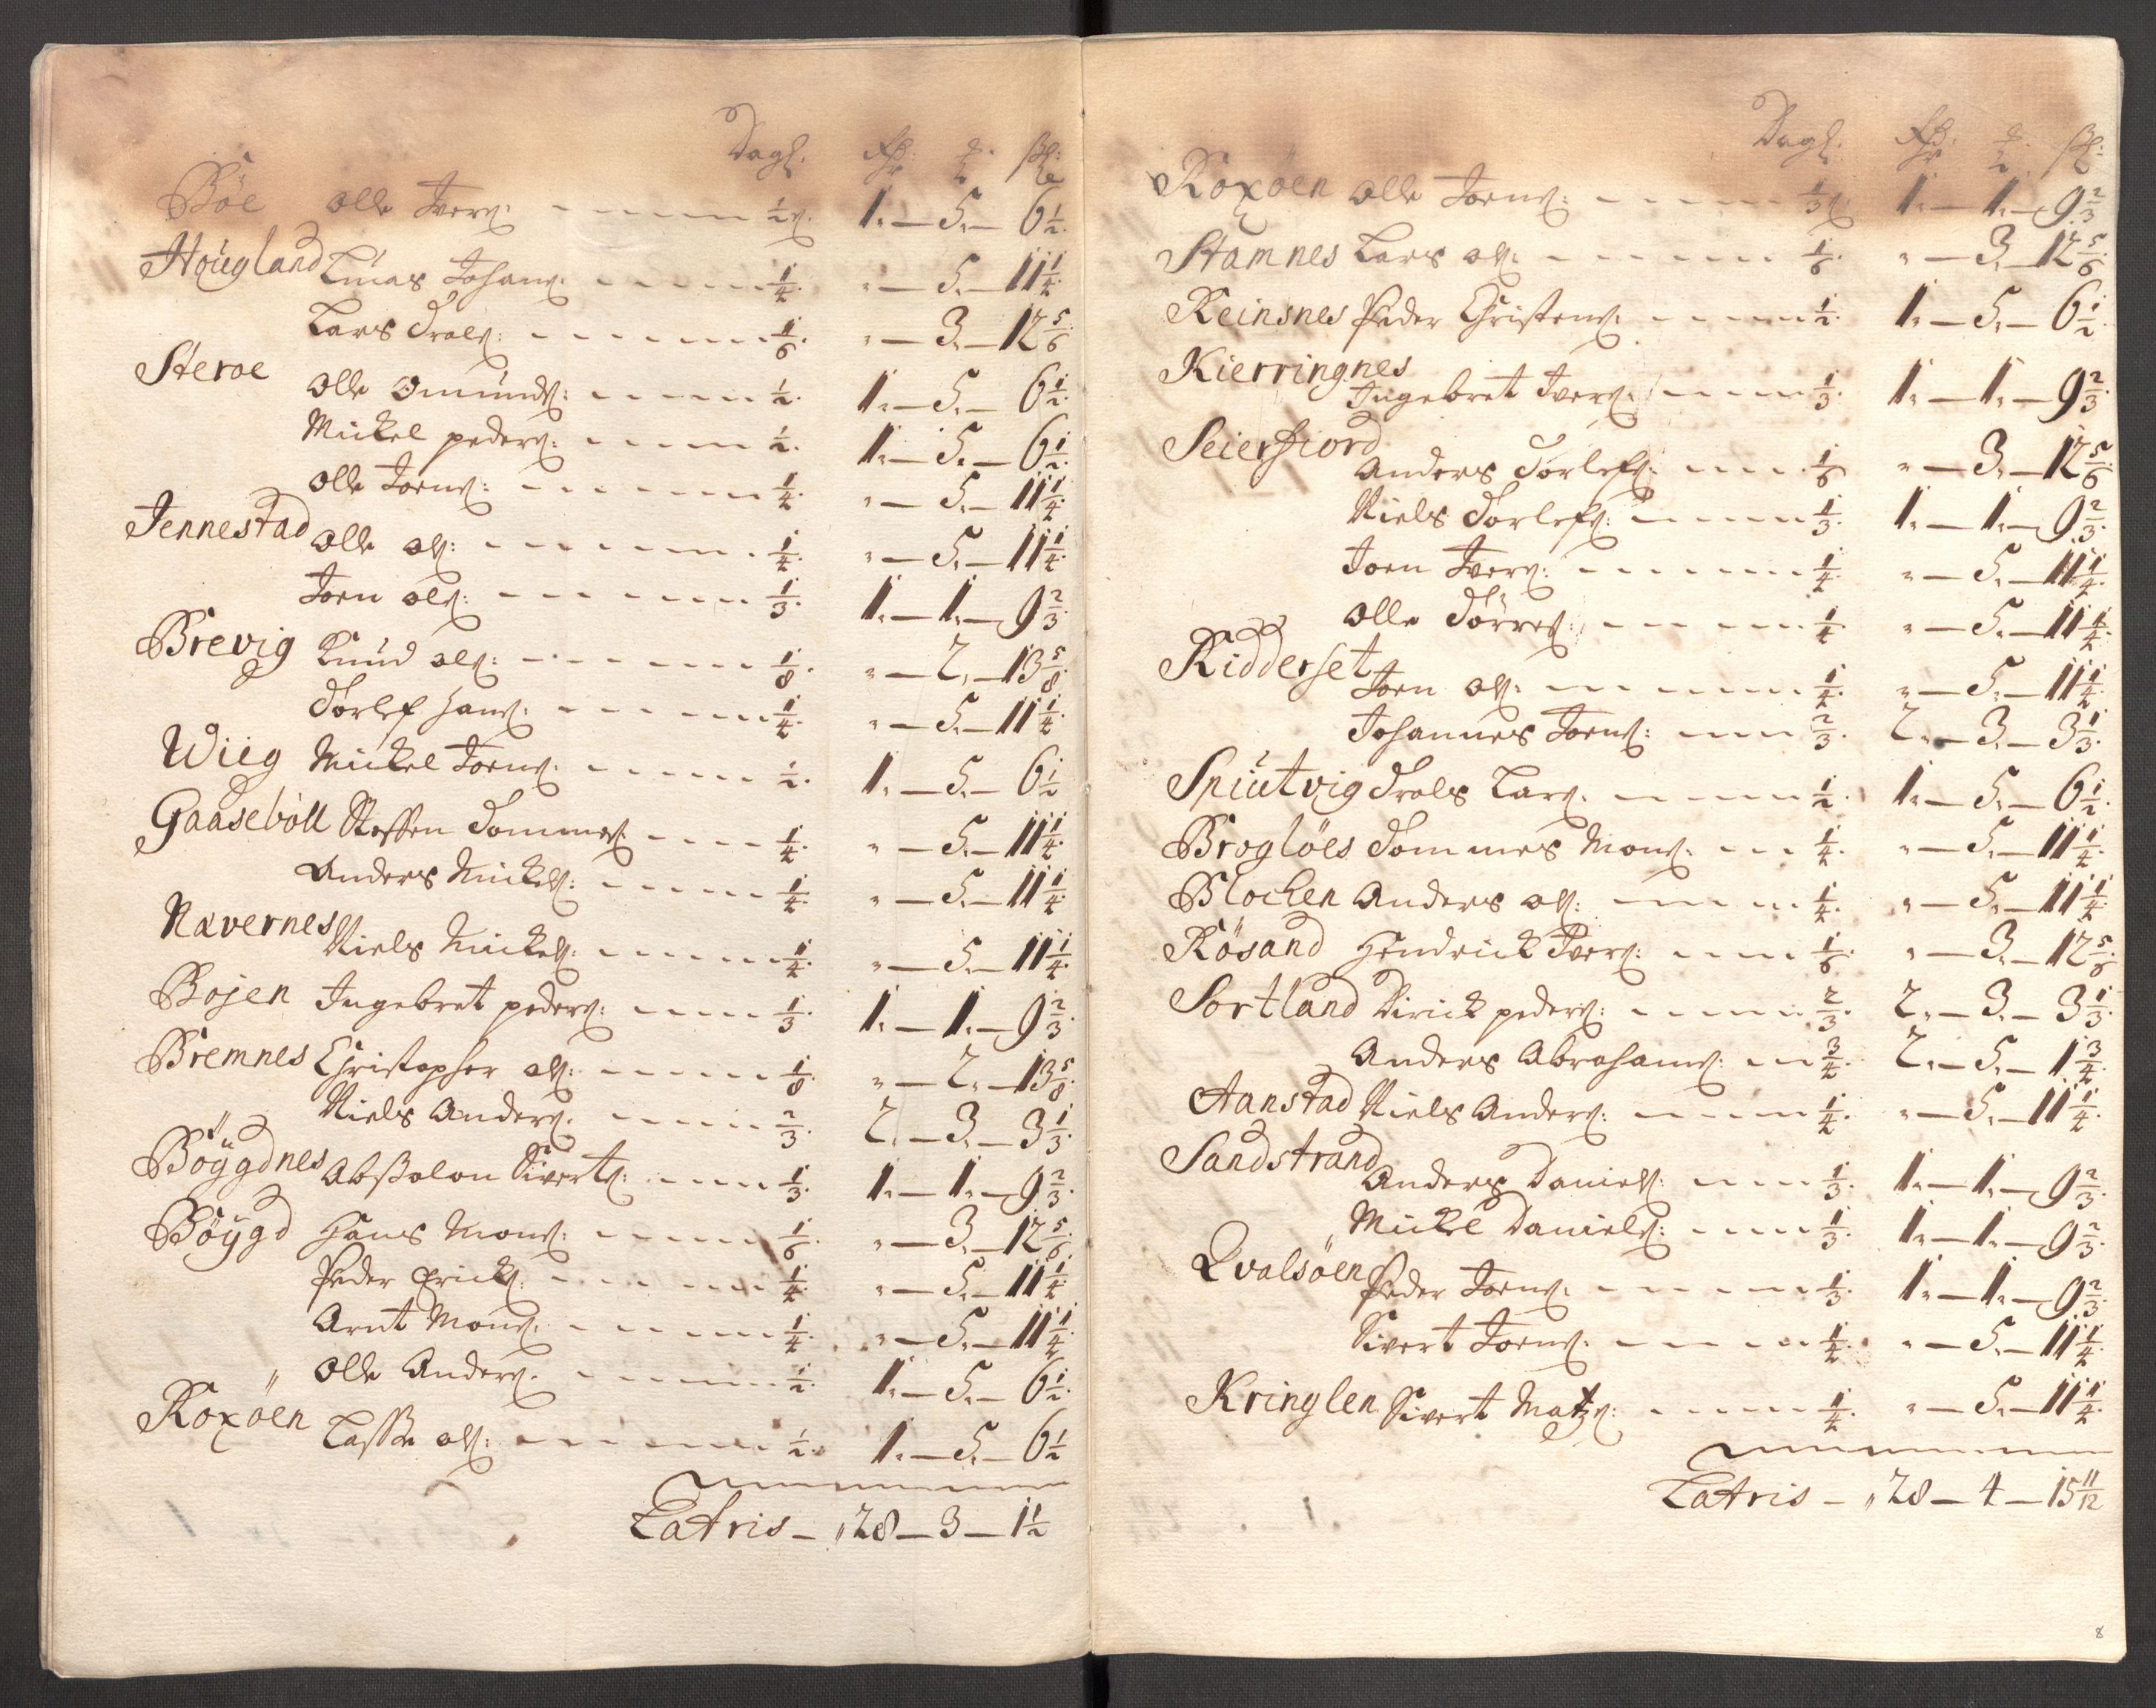 Dagß. Rdr: ort ß:
Böe Olle Iverß: - - - - - - ½ß. 1. — 5. — 6½.
Hougland Lucas Johanß: - - - - - ¼. " — 5. — 11¼.
Lars Trolß: - - - - - - - ⅙. " — 3. — 12⅚.
Steroe
Olle Omundß: - - - - - ½. 1. — 5. — 6½.
Mickel pederß: - - - - - ½. 1. — 5. — 6½.
Olle Joenß: - - - - - - - ¼. " — 5. — 11¼.
Jennestad Olle olß: - - - - - - - ¼. " — 5. — 11¼.
Joen olß: - - - - - - - ⅓. 1. — 1. — 9⅔.
Brevig Knud olß: - - - - - - - ⅛. " — 2. — 13⅝.
Torlef Hanß: - - - - - - ¼. " — 5. — 11¼.
Wiig Mickel Joenß: - - - - - ½. 1. — 5. — 6½
Gaaseböll Steffen Tommeß: - - - - ¼. " — 5. — 11¼.
Anders Mickelß: - - - - - ¼. " — 5. — 11¼.
Nævernes Niels Mickelß: - - - - - - ¼. " — 5. — 11¼.
Bojen Ingebret pederß: - - - - ⅓. 1. — 1. — 9⅔.
Bremnes Christopher olß: - - - - - ⅛. " — 2. — 13⅝.
Niels Anderß: - - - - - ⅔. 2. — 3. — 3⅓.
Böÿgdnes Abßolon Sivertß: - - - - ⅓. 1. — 1. — 9⅔.
Böÿgd Hans Monß: - - - - - ⅙. " — 3. — 12⅚.
Peder Erickß: - - - - - - ¼. " — 5. — 11¼.
Arnt Monß: - - - - - - ¼. " — 5. — 11¼.
" Olle Anderß: - - - - - - ½. 1. — 5. — 6½.
Roxöen Lasse olß: - - - - - - ½. 1. — 5. — 6½
Latris — " 28 — 3 — 1½
Dagß. Rdr: ort ß:
Roxöen Olle Joenß: - - - - - ⅓ß. 1. — 1. — 9⅔.
Stamnes Lars olß: - - - - - - ⅙. " — 3. — 12⅚.
Reinsnes Peder Christenß: - - - - ½. 1. — 5. — 6½.
Kierringnes
Ingebret Iverß: - - - - ⅓. 1. — 1. — 9⅔.
Seierfiord
Anders Torlefß: - - - - ⅙. " — 3. — 12⅚.
Niels Torlefß: - - - - - ⅓. 1. — 1. — 9⅔.
Joen Iverß: - - - - - - ¼. " — 5. — 11¼.
Olle Törreß: - - - - - - ¼. " — 5. — 11¼.
Ridderset
Joen olß: - - - - - - ¼. " — 5. — 11¼.
Johannes Joenß: - - - ⅔. 2. — 3. — 3⅓.
Spiutvig Trols Larß: - - - - - ½. 1. — 5. — 6½.
Broglöes Tommes Monß: - - - ¼. " — 5. — 11¼.
Blochen Anders olß: - - - - - ¼. " — 5. — 11¼.
Rösand Hendrick Iverß: - - - - ⅙. " — 3. — 12⅚.
Sortland Dirick pederß: - - - - - ⅔. 2. — 3. — 3⅓.
Anders Abrahamß: - - ¾. 2. — 5. — 1¾.
Aanstad Niels Anderß: - - - - - ¼. " — 5. — 11¼.
Sandstrand
Anders Danielß: - - - ⅓. 1. — 1. — 9⅔.
" Mickel Danielß: - - - - ⅓. 1. — 1. — 9⅔.
Qvalsöen Peder Joenß: - - - - - - ⅓. 1. — 1. — 9⅔.
Sivert Joenß: - - - - - - ¼. " — 5. — 11¼.
Kringlen Sivert Matzß: - - - - - ¼. " — 5. — 11¼.
Latris — " 28 — 4 — 15 11/12
8